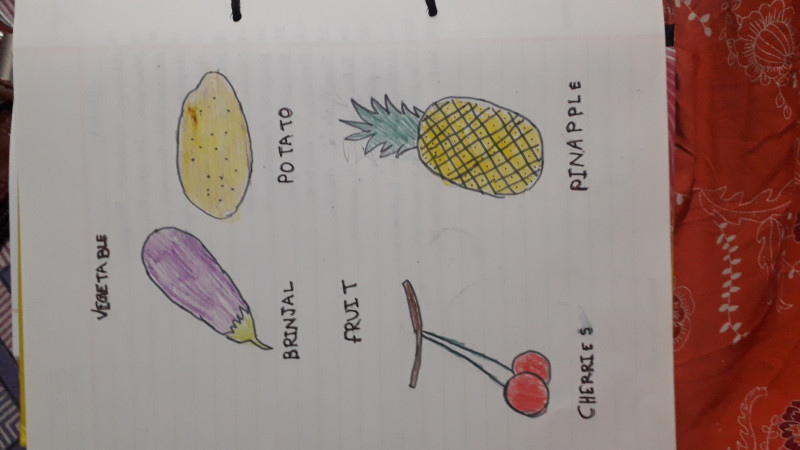 VEGETABLE
BRINJAL POTATO
FRUIT
CHERRIES PINAPPLE